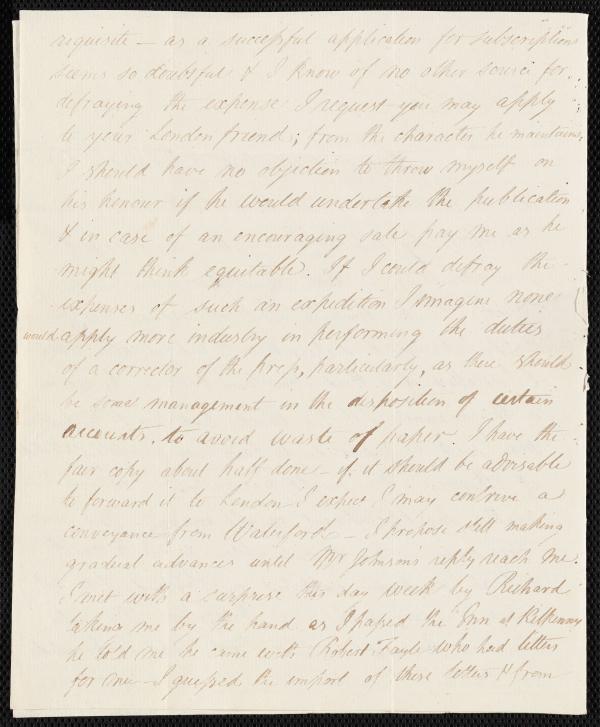 requisite — as a successful application for subscriptions
seems so doubtful & I know of no other source for
defraying the expense I request you may apply
to your London friend; from the character he maintains,
I should have no objection to throw myself on
his honour if he would undertake the publication
& in case of an encouraging sale pay me as he
might think equitable. If I could defray the
expenses of such an expedition I imagine none
would apply more industry in performing the duties
of a corrector of the press, particularly, as there should
be some management in the disposition of certain
accounts, to avoid waste of paper. I have the
fair copy about half done – if it should be advisable
to forward it to London I expect I may contrive a
conveyance from Waterford – I propose still making
gradual advances until Mr Johnson's reply reach me.
I met with a surprise this day week by Richard
taking me by the hand as I passed the Inn at Kilkenny
he told me he came with Robert Fayle who had letters
for me – I guessed the import of these letters & from